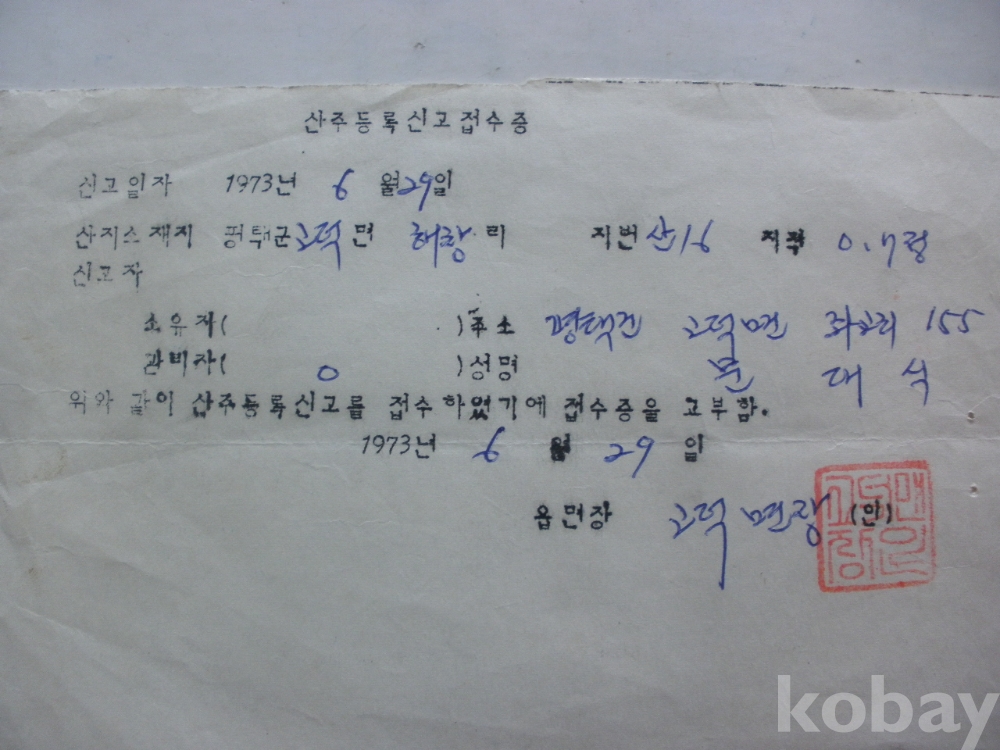 산주등록신고접수증
신고일자 1973년 6 월 29일
산지소재지 평택군 고덕면 해창리 지번 산16 지적 0.7정
신고자
소유자( )주소 평택군 고덕면 좌교리 155
관비자( 0 )성명 문대식
위와 같이 산주등록신고를 접수하였기에 접수증을 교부함.
1973년 6 월 29 일
읍면장 고덕면장 (인)
고덕면장인
kobay